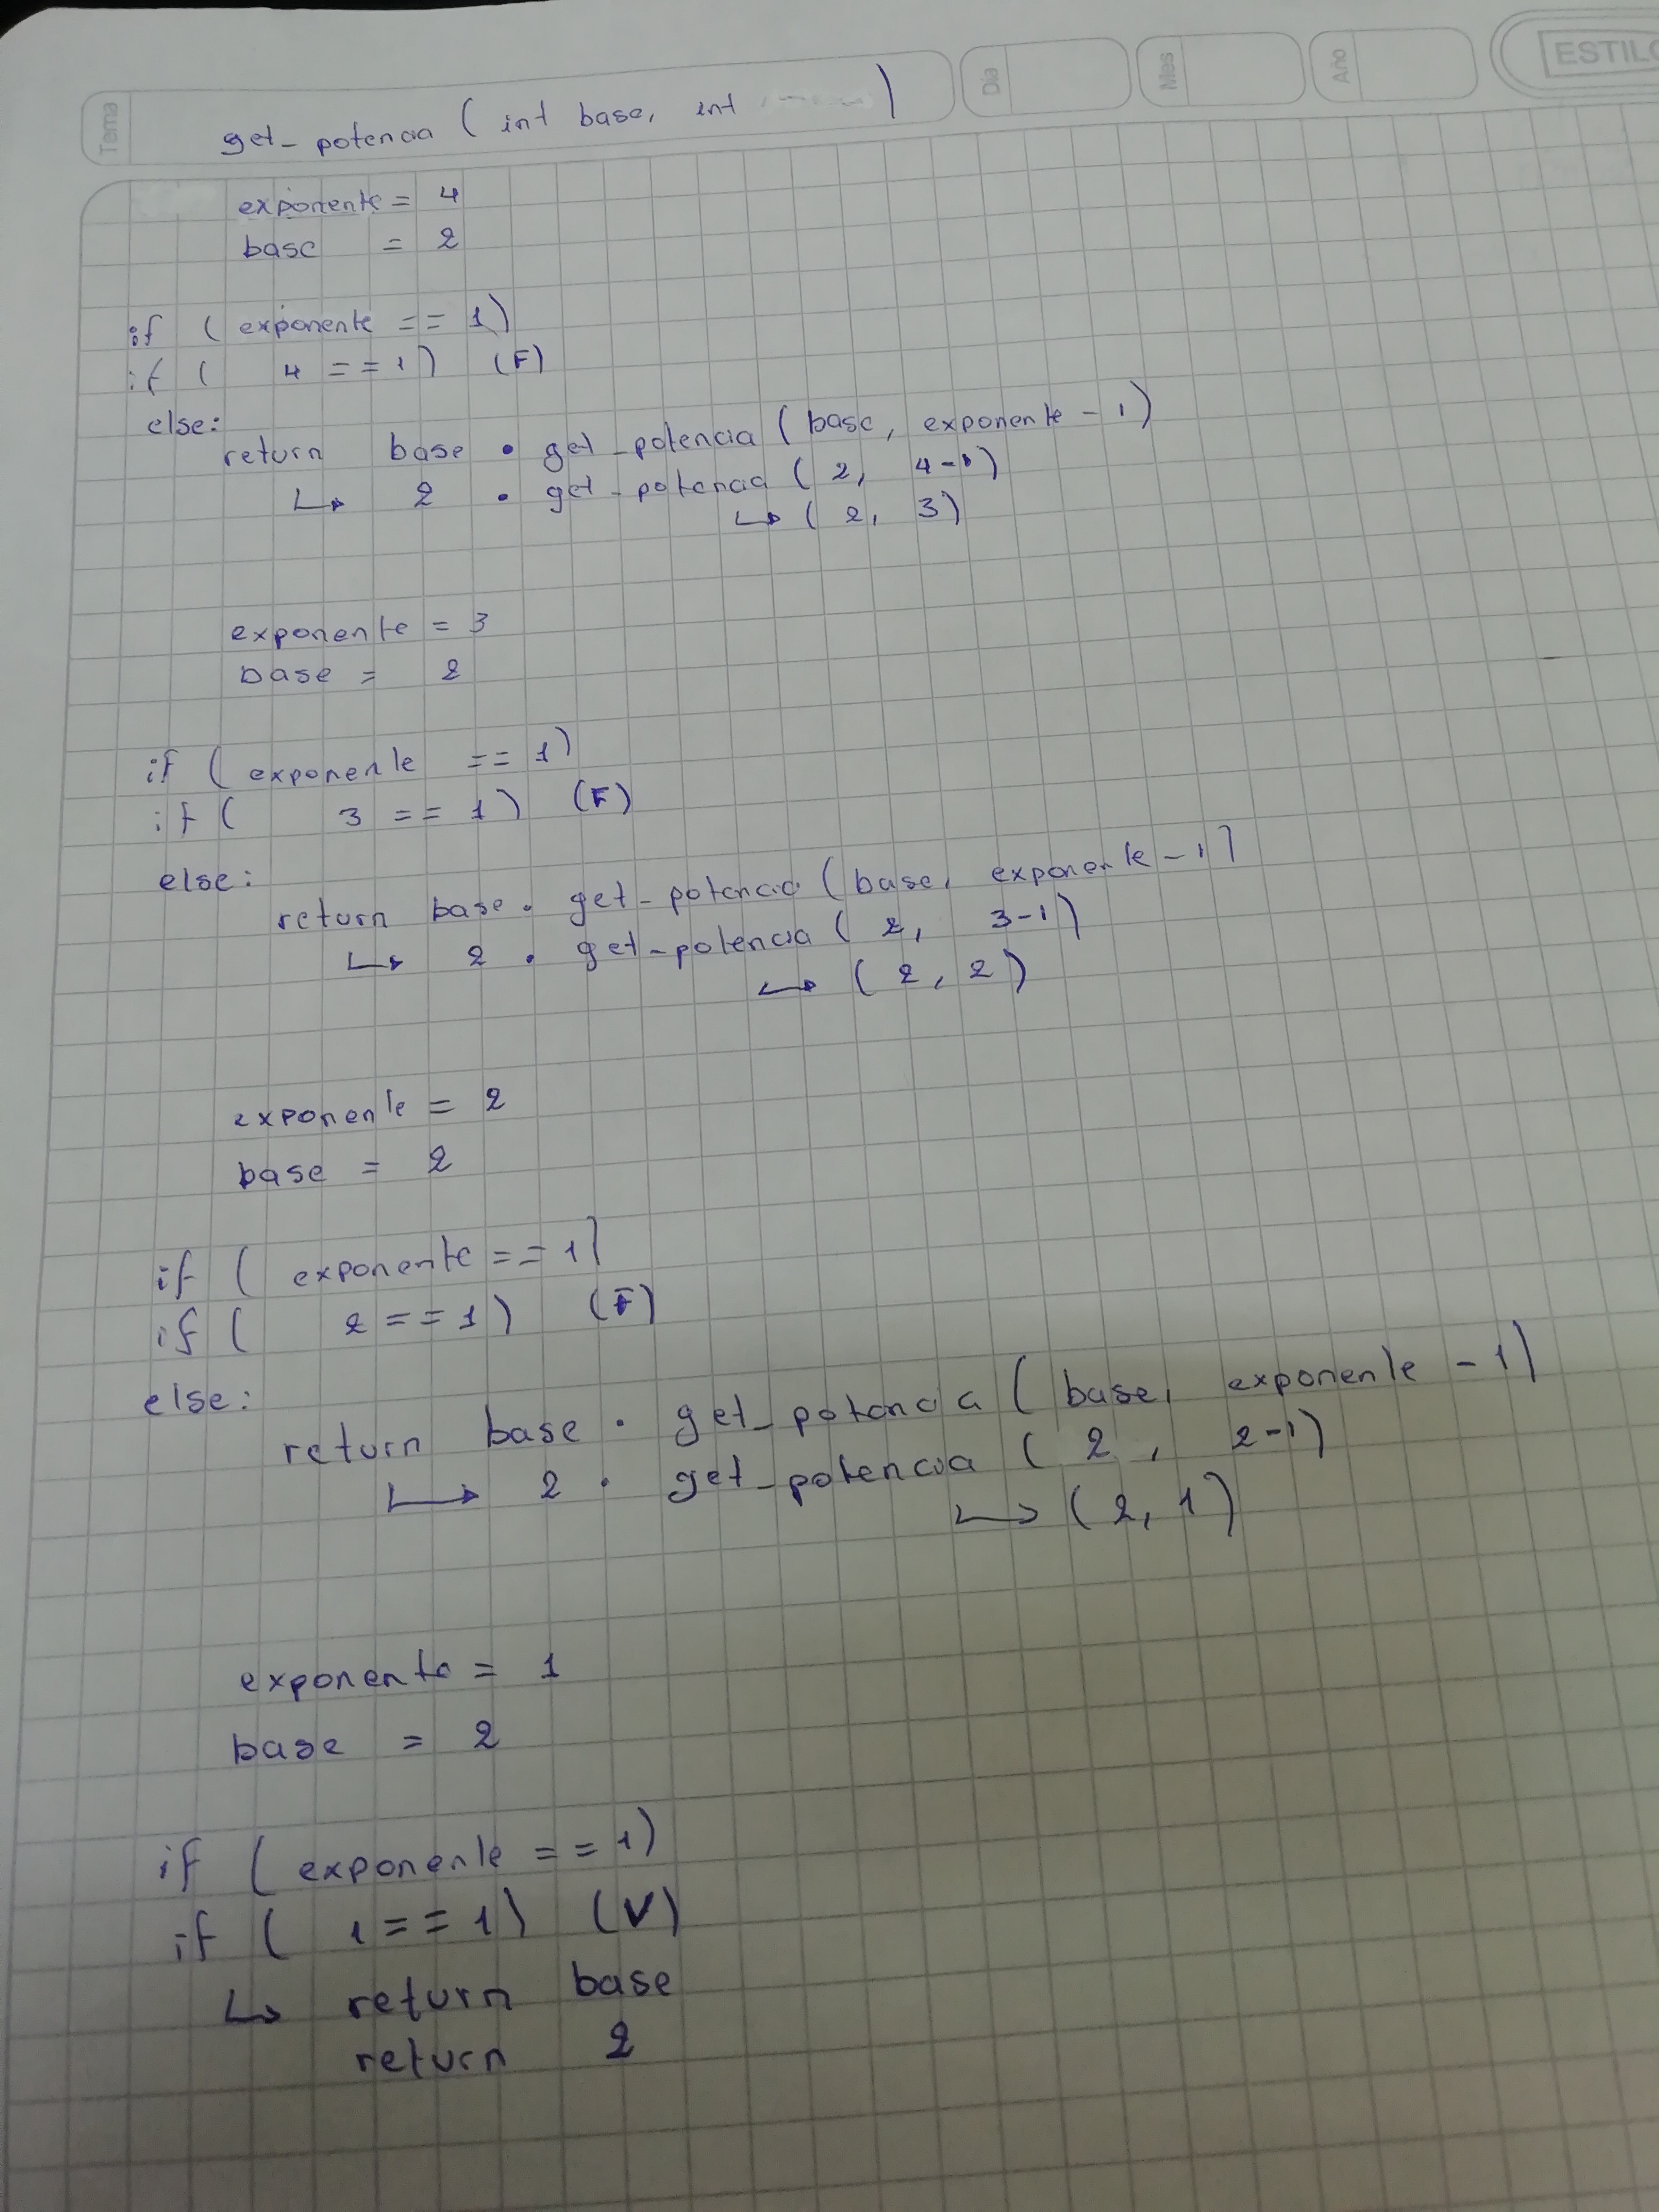 Tema
Dia
Mes
Año
get_potencia ( int base, int )
exponente = 4
base = 2
if ( exponente == 1)
if ( 4 == 1) (F)
else:
return base • get_potencia ( base, exponente - 1)
↳ 2 • get_potencia ( 2, 4-1)
↳ ( 2, 3)
exponente = 3
base = 2
if ( exponente == 1)
if ( 3 == 1) (F)
else:
return base • get_potencia ( base, exponente - 1)
↳ 2 • get_potencia ( 2, 3-1)
↳ ( 2, 2)
exponente = 2
base = 2
if ( exponente == 1)
if ( 2 == 1) (F)
else:
return base • get_potencia ( base, exponente - 1)
↳ 2 • get_potencia ( 2, 2-1)
↳ ( 2, 1)
exponente = 1
base = 2
if ( exponente == 1)
if ( 1 == 1) (V)
↳ return base
return 2